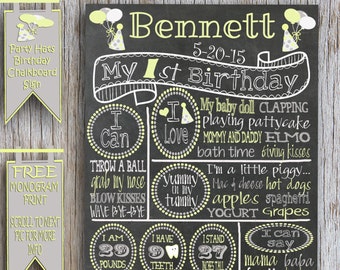 Party Hats
Birthday
Chalkboard
Sign
FREE
MONOGRAM
PRINT
SCROLL TO NEXT
PICTURE FOR MORE
INFO
Bennett
5-20-15
My 1st Birthday
I
Can
THROW A BALL
grab my nose
BLOW KISSES
WAVE BYE-BYE
I
Love
My baby doll CLAPPING
playing pattycake
MOMMY AND DADDY ELMO
bath time giving kisses
Yummy
in my
tummy
I'm a little piggy...
Mac & cheese hot dogs
apples spaghetti
YOGURT Grapes
I AM
29
POUNDS
I HAVE
9
TEETH
I STAND
27
I can
say
mama baba